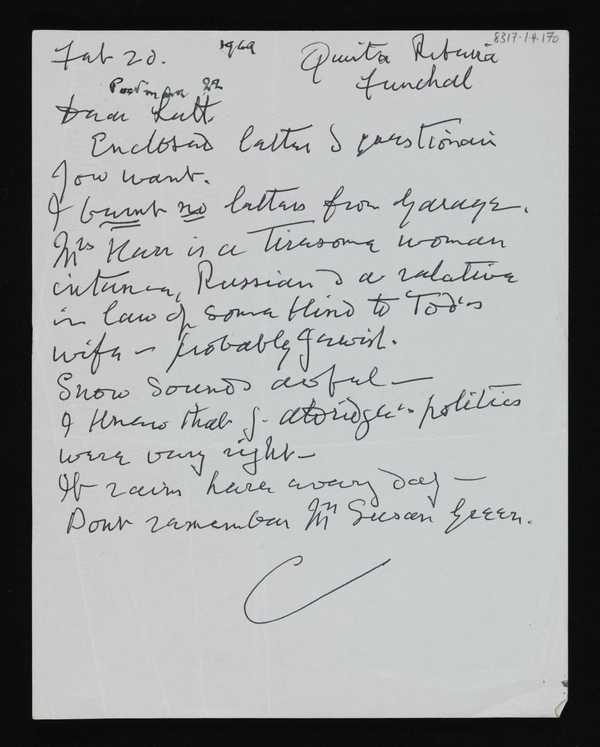 8317.1.4.170
Feb 20. 1969 Quinta Ribeira
Funchal
Postmark 22
Dear Lett
Enclosed letter & questionair
you want.
I burnt no letters from Garage.
Mrs Karr is a tiresome woman
intense, Russian & a relative
in law of some blind to Tod's
wife – probably Jewish.
Snow sounds awful –
I knew that J. Aldridge's politics
were very right –
It rains here every day –
Dont remember Mrs Susan Green.
C